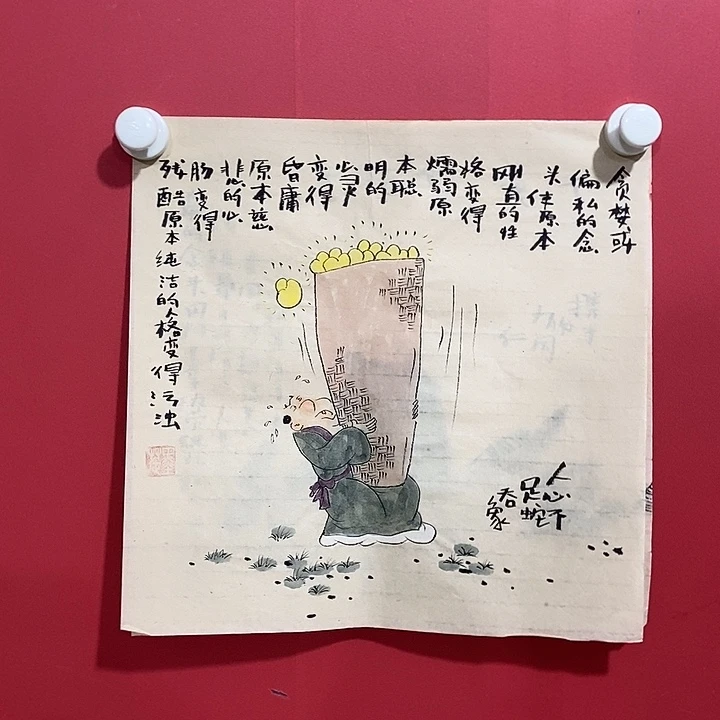 贪婪或
偏私的念
头使原本
刚直的性
格变得
懦弱原
本聪
明的
心灵
变得
昏庸
原本慈
悲的心
肠变得
残酷原本纯洁的人格变得污浊
人心不
足蛇
吞象